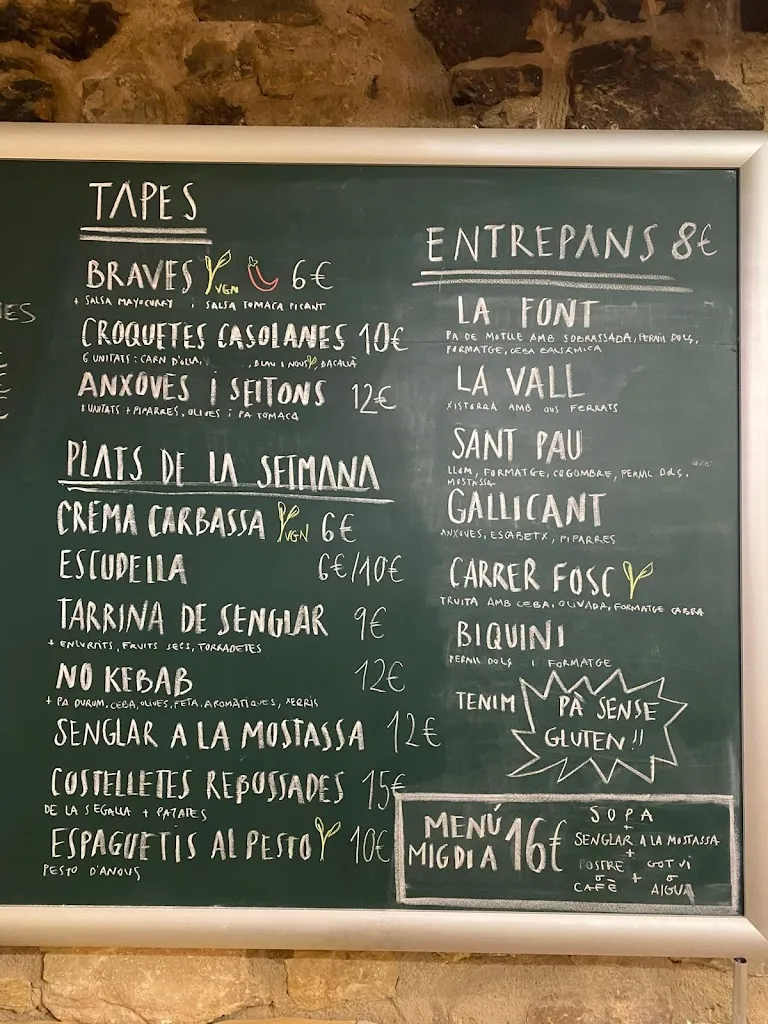 TAPES
BRAVES VGN 6€
+ SALSA MAYOCURRY i SALSA TOMACA PICANT
CROQUETES CASOLANES 10€
6 UNITATS: CARN D'OLLA, , BLAU I NOUS, BACALLÀ
ANXOVES I SEITONS 12€
8 UNITATS + PIPARRES, OLIVES i PA TOMACA
PLATS DE LA SETMANA
CREMA CARBASSA VGN 6€
ESCUDELLA 6€/10€
TARRINA DE SENGLAR 9€
+ ENCURTITS, FRUITS SECS, TORRADETES
NO KEBAB 12€
+ PA DURUM, CEBA, OLIVES, FETA, AROMÀTIQUES, XERRIS
SENGLAR A LA MOSTASSA 12€
COSTELLETES REBOSSADES 15€
DE LA SEGALLA + PATATES
ESPAGUETIS AL PESTO 10€
PESTO D'ANOUS
ENTREPANS 8€
LA FONT
PA DE MOTLLE AMB SOBRASSADA, PERNIL DOLÇ,
FORMATGE, CEBA BALSÀMICA
LA VALL
XISTORRA AMB OUS FERRATS
SANT PAU
LLOM, FORMATGE, COGOMBRE, PERNIL DOLÇ,
MOSTASSA
GALLICANT
ANXOVES, ESCABETX, PIPARRES
CARRER FOSC
TRUITA AMB CEBA, OLIVADA, FORMATGE CABRA
BIQUINI
PERNIL DOLÇ I FORMATGE
TENIM PÀ SENSE
GLUTEN!!
MENÚ
MIGDIA 16€
SOPA
+
SENGLAR A LA MOSTASSA
+
POSTRE GOT VI
o + o
CAFÈ AIGUA